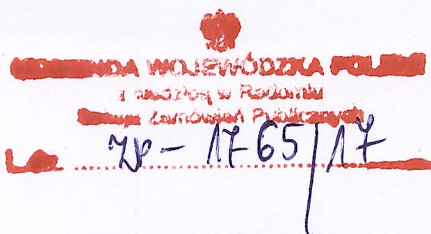 KOMENDA WOJEWÓDZKA POLICJI
z siedzibą w Radomiu
Sekcja Zamówień Publicznych
L.dz. ZP - 1765/17